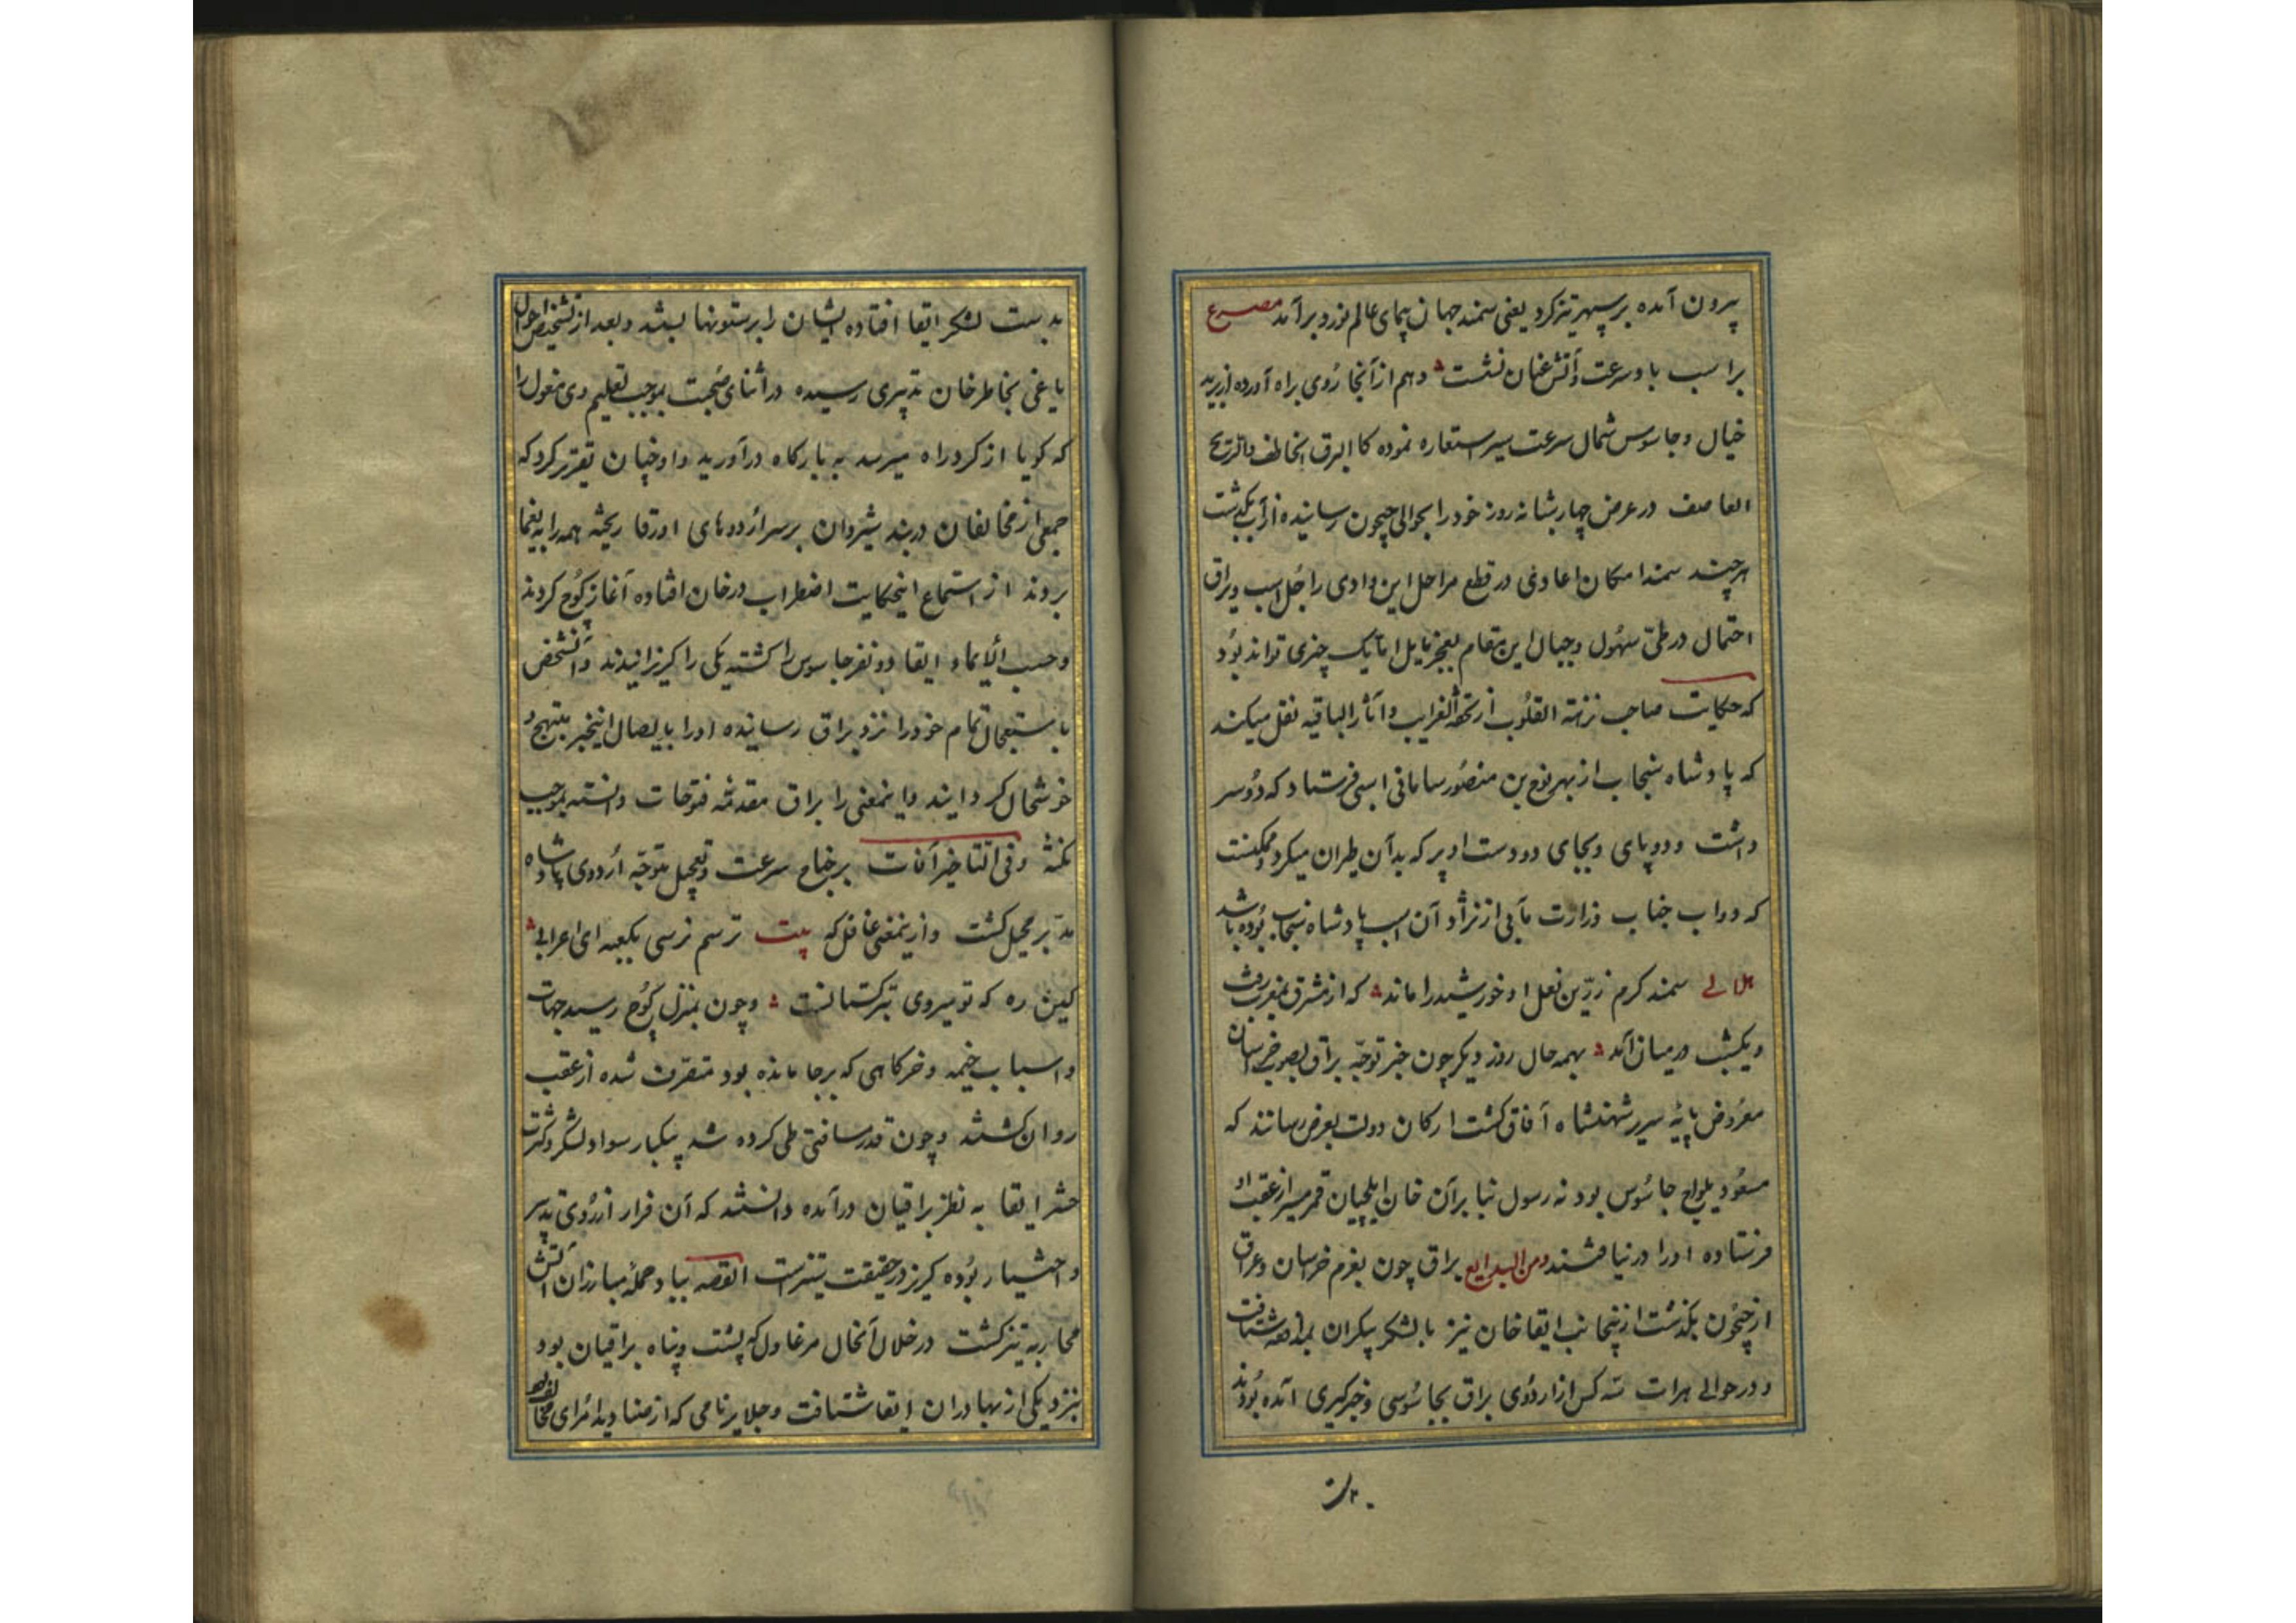 بیرون آمده بر سپهر تیزکرد یعنی سمند جهان پیمای عالم نورد برآمد مصرع
بر اسب باد سرعت و آتش عنان نشست و هم از آنجا روی براه آورده از برید
خیال و جاسوس شمال سرعت سیر استعاره نموده کالبرق الخاطف والریح
العاصف در عرض چهار شبانه روز خود را بحوالی جیحون رسانیده از آب بگذشت
هر چند سمند امکان اعادی در قطع مراحل این وادی راجل اسب و براق
احتمال در طی سهول و جبال این مقام بعجز مایل اما یک چیزی تواند بود
که حکایت صاحب نزهة القلوب از تحفة الغرایب و آثار الباقیه نقل میکند
که پادشاه سنجاب از بهر نوح بن منصور سامانی اسبی فرستاد که دو سر
داشت و دو پای و بجای دو دست او پر که بدآن طیران میکرد و ممکنست
که دواب جناب وزارت مآبی از نژاد آن اسب پادشاه سنجاب بوده باشد
هلالے سمند کرم زرین نعل او خورشید را ماند که از مشرق بمغرب رفت
و یکشب در میان آمد بهمه حال روز دیکر چون خبر توجه براق بصوب خراسان
معروض پایه سریر شهنشاه آفاق کشت ارکان دولت بعرض رسانند که
مسعود یلواج جاسوس بود نه رسول بنا برآن خان ایلچیان قمر مسیر از عقب او
فرستاده او را در نیافتند ومن البدایع براق چون بعزم خراسان و عراق
از جیحون بکذشت ازینجانب ابقا خان نیز با لشکر بیکران بمدافعه شتافت
و در حوالے هرات سه کس از اردوی براق بجاسوسی و خبرکیری آمده بودند
بدست
بدست لشکر ابقا افتاده ایشان را برستونها بستند و بعد از تشخیص احوال
یاغی بخاطر خان تدبیری رسیده در اثنای صحبت بموجب تعلیم وی مغول را
که کویا از کرد راه میرسد به بارکاه درآورید و او چنان تقریر کرد که
جمعی از مخالفان دربند شیروان بر سر اردوهای اورقا ریخته همه را به یغما
بردند از استماع اینحکایت اضطراب در خان افتاده آغاز کوچ کردند
و حسب الایماء ابقا دو نفر جاسوس را کشته یکی را کریزانیدند و آنشخص
باستعجال تمام خود را نزد براق رسانیده او را بایصال اینخبر مبتهج و
خوشحال کردانید و اینمعنی را براق مقدمه فتوحات دانسته بموجب
نکته وفی التاخیر آفات بر جناح سرعت و تعجیل متوجه اردوی پادشاه
مدبر محیل کشت و ازینمعنی غافل که بیت ترسم نرسی بکعبه ای اعرابی
کین ره که تو میروی بترکستانست و چون بمنزل کوچ رسید جهات
و اسباب خیمه و خرکاهی که بر جا مانده بود متصرف شده از عقب
روان کشتند و چون قدر مسافتی طی کرده شد بیکبار سواد لشکر و کثرت
حشر ابقا به نظر براقیان درآمده دانستند که آن فرار از روی تدبیر
و اختیار بوده کریز در حقیقت ستیزست القصه بباد حمله مبارزان آتش
محاربه تیز کشت در خلال آنحال مرغاول که پشت و پناه براقیان بود
بنزد یکی از بهادران ابقا شتافت و جلایر نامی که از صنادید امرای مخالف بود